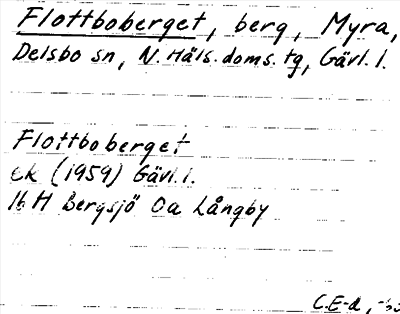 Flottboberget, berg, Myra,
Delsbo sn, N. Häls. doms. tg, Gävl. l.
Flottboberget
ek (1959) Gävl. l.
16 H Bergsjö 0a Långby
C.E-d,